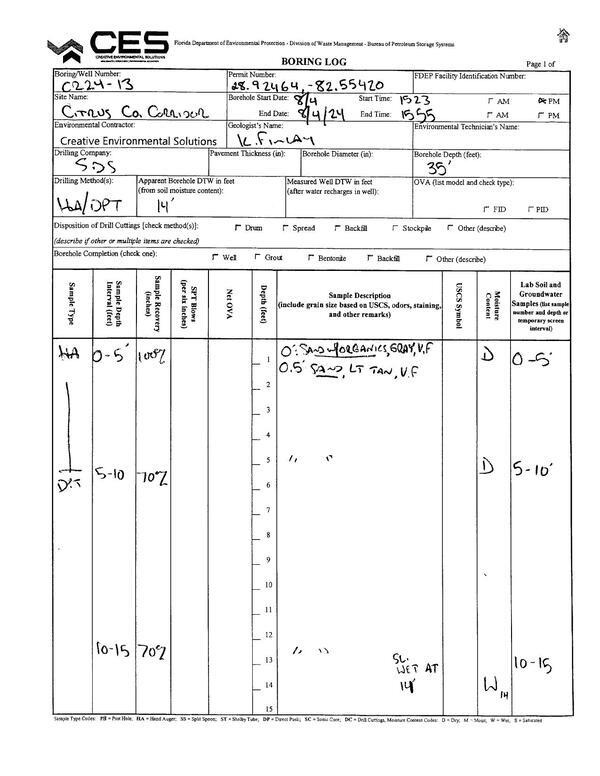 CES
CREATIVE ENVIRONMENTAL SOLUTIONS
Florida Department of Environmental Protection - Division of Waste Management - Bureau of Petroleum Storage Systems
BORING LOG
Page 1 of
Boring/Well Number: C224-13
Permit Number: 28.92464, -82.55420
FDEP Facility Identification Number:
Site Name: CITRUS CO. CORRIDOR
Borehole Start Date: 8/4 Start Time: 1523 AM PM
End Date: 8/4/24 End Time: 1555 AM PM
Environmental Contractor: Creative Environmental Solutions
Geologist's Name: K. FINLAY
Environmental Technician's Name:
Drilling Company: SDS
Pavement Thickness (in):
Borehole Diameter (in):
Borehole Depth (feet): 35'
Drilling Method(s): HA/DPT
Apparent Borehole DTW in feet (from soil moisture content): 14'
Measured Well DTW in feet (after water recharges in well):
OVA (list model and check type): FID PID
Disposition of Drill Cuttings [check method(s)]: Drum Spread Backfill Stockpile Other (describe)
(describe if other or multiple items are checked)
Borehole Completion (check one): Well Grout Bentonite Backfill Other (describe)
Sample Type
Sample Depth Interval (feet)
Sample Recovery (inches)
SPT Blows (per six inches)
Net OVA
Depth (feet)
Sample Description (include grain size based on USCS, odors, staining, and other remarks)
USCS Symbol
Moisture Content
Lab Soil and Groundwater Samples (list sample number and depth or temporary screen interval)
HA 0-5' 100% 1 0': SAND W/ORGANICS, GRAY, V.F D 0-5'
0.5' SAND, LT TAN, V.F
2
3
4
5 " " D 5-10'
DPT 5-10 70% 6
7
8
9
10
11
12
10-15 70% 13 " " SL. WET AT 14' 10-15
14 W 14
15
Sample Type Codes: PH = Post Hole; HA = Hand Auger; SS = Split Spoon; ST = Shelby Tube; DP = Direct Push; SC = Sonic Core; DC = Drill Cuttings, Moisture Content Codes: D = Dry; M = Moist; W = Wet; S = Saturated